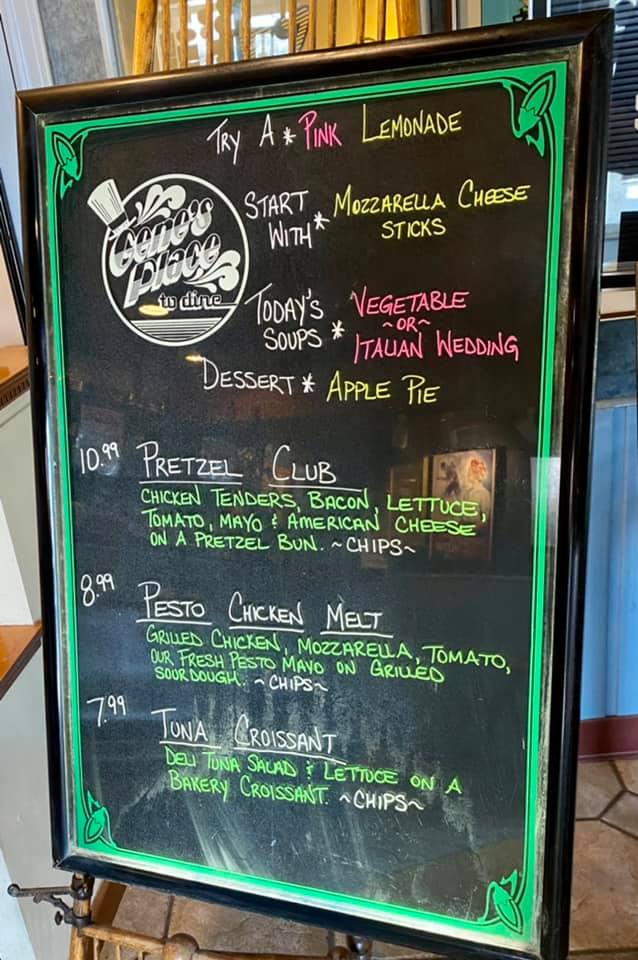 TRY A * PINK LEMONADE
Gene's
Place
to dine
START
WITH * MOZZARELLA CHEESE
STICKS
TODAY'S
SOUPS * VEGETABLE
~OR~
ITALIAN WEDDING
DESSERT * APPLE PIE
10.99 PRETZEL CLUB
CHICKEN TENDERS, BACON, LETTUCE,
TOMATO, MAYO & AMERICAN CHEESE
ON A PRETZEL BUN. ~CHIPS~
8.99 PESTO CHICKEN MELT
GRILLED CHICKEN, MOZZARELLA, TOMATO,
OUR FRESH PESTO MAYO ON GRILLED
SOURDOUGH. ~CHIPS~
7.99 TUNA CROISSANT
DELI TUNA SALAD & LETTUCE ON A
BAKERY CROISSANT. ~CHIPS~